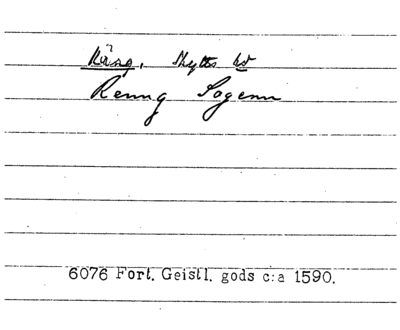 Räng, Skytts hd
Renng Sogenn
6076 Fort. Geistl. gods c:a 1590.